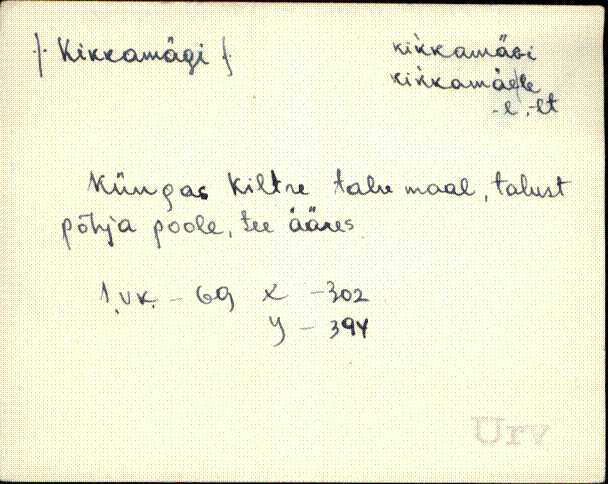 { Kikkamägi }
kikkamägi
kikkamäele
-l, -lt
Küngas Kiltre talu maal, talust
põhja poole, tee ääres
1.VK. – 69 x – 302
y – 394
Urv